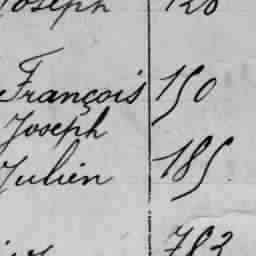 Joseph 120
François 150
Joseph
Julien 185
783